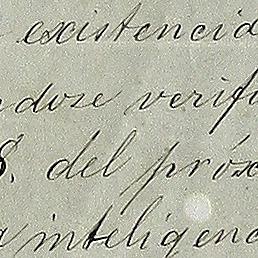 existencia
dose verifi
8. del próx
inteligenc